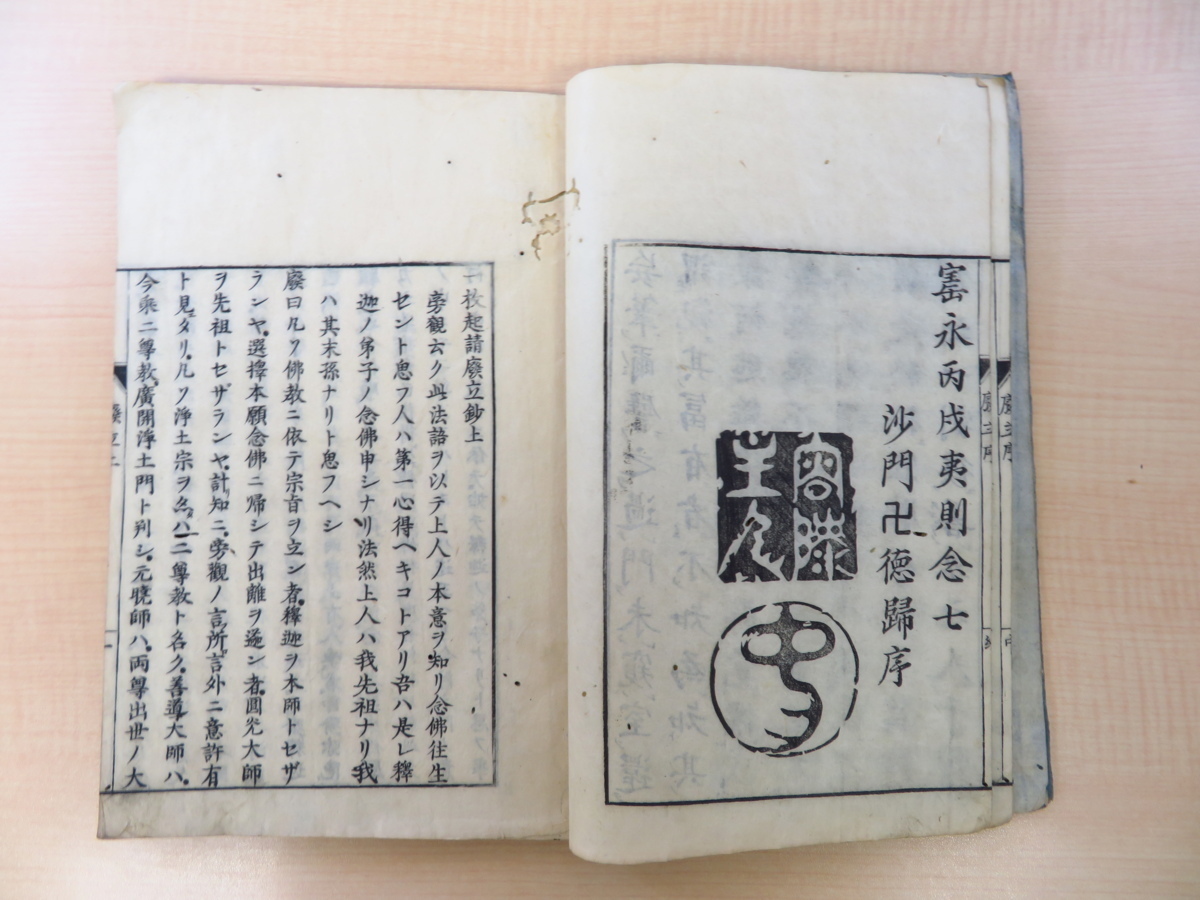 寳永丙戌夷則念七
沙門卍徳歸序
枚起請廢立鈔上
旁觀云ク此法語ヲ以テ上人ノ本意ヲ知リ念佛往生
セント思フ人ハ第一心得ヘキコトアリ吾ハ是レ釋
迦ノ弟子ノ念佛申シナリ法然上人ハ我先祖ナリ我
ハ其末孫ナリト思フヘシ
廢曰凡ソ佛教ニ依テ宗旨ヲ立ン者釋迦ヲ本師トセザ
ランヤ選擇本願念佛ニ帰シテ出離ヲ遂ン者圓光大師
ヲ先祖トセザランヤ計知ニ旁觀ノ言所言外ニ意許有
ト見タリ凡ソ浄土宗ヲハ二尊教ト名ク善導大師ハ
今乘二尊教廣開淨土門ト判シ元曉師ハ兩尊出世ノ大
廢立上
廢立序
廢立序